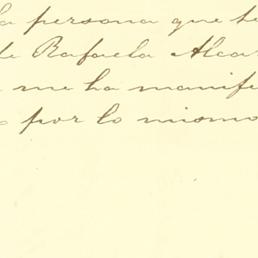 la persona que te
de Rafaela Alcar
me ha manife
por lo mismo